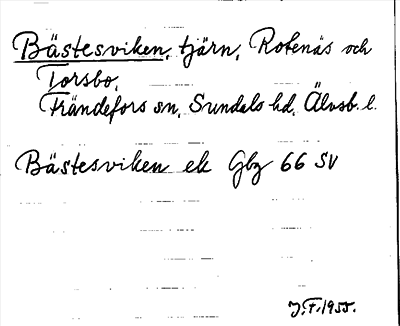 Bästesviken, tjärn, Rotenäs och
Torsbo,
Frändefors sn, Sundals hd, Älvsb. l.
Bästesviken ek Gbg 66 SV
J.F. 1955.